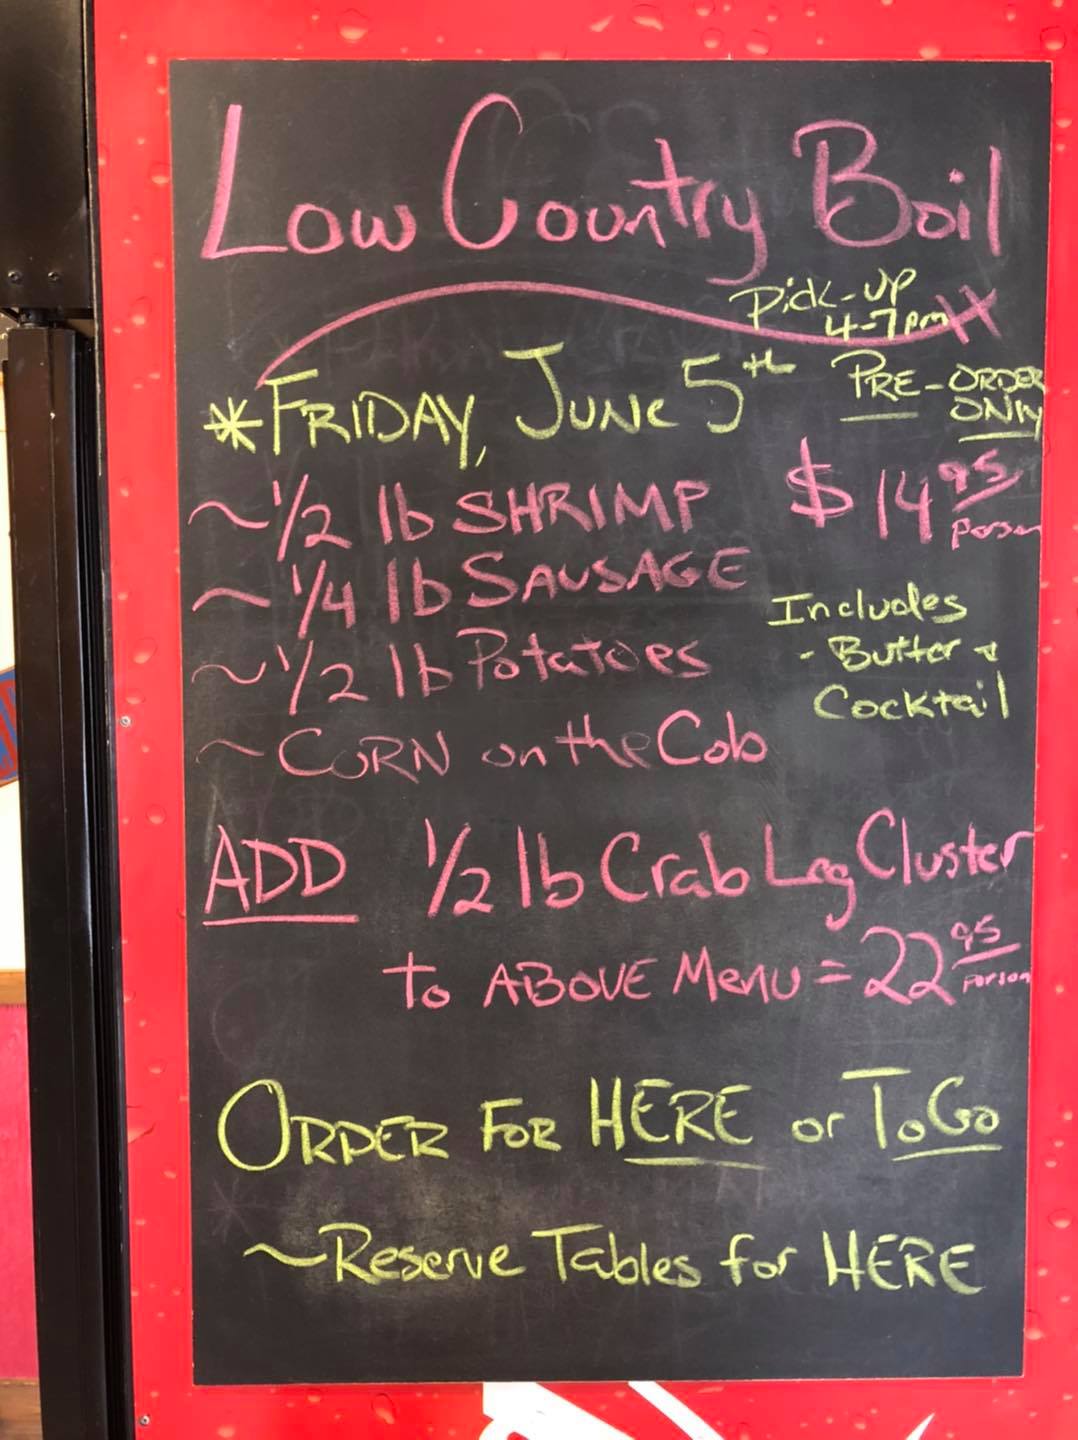 Low Country Boil
Pick-up
4-7pm
*FRIDAY, June 5th
PRE-ORDER
ONLY
~1/2 lb SHRIMP
$14.95
person
~1/4 lb SAUSAGE
~1/2 lb Potatoes
~CORN on the Cob
Includes
- Butter &
Cocktail
ADD 1/2 lb Crab Leg Cluster
to ABOVE Menu = 22.95
person
ORDER FOR HERE or ToGo
~Reserve Tables for HERE